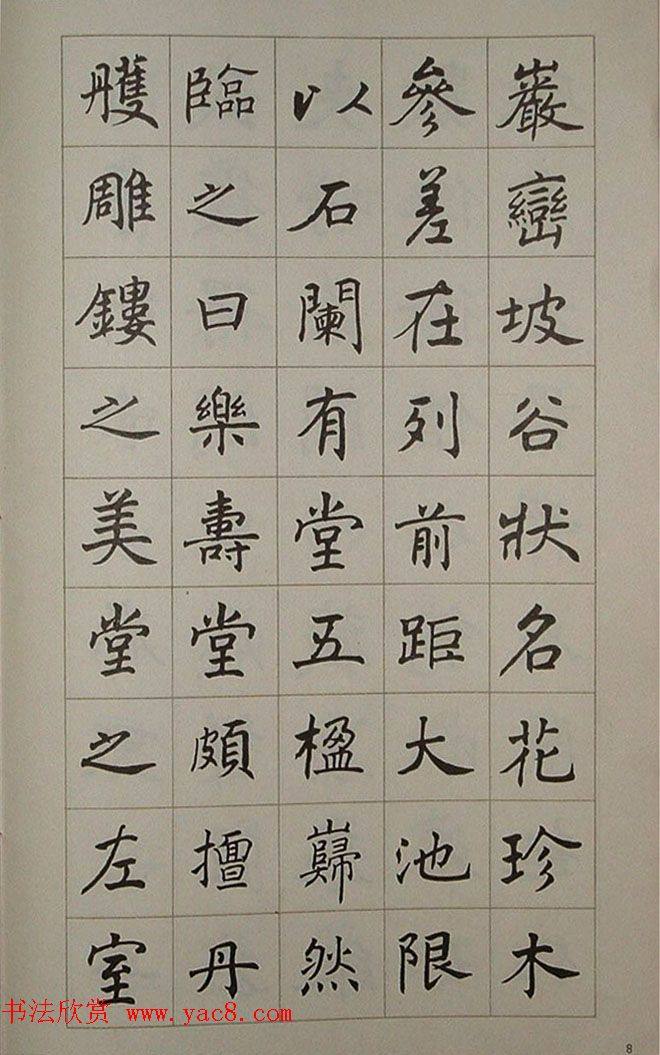 巖巒坡谷狀名花珍木
參差在列前距大池限
以石闌有堂五楹巋然
臨之曰樂壽堂頗擅丹
雘雕鏤之美堂之左室
书法欣赏 www.yac8.com
8